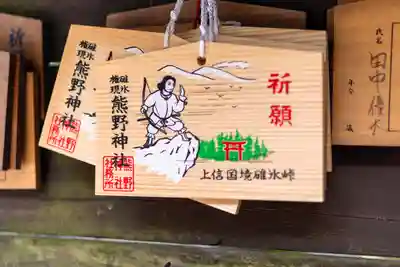 祈願
碓氷
権現
熊野神社
熊野
神社
社務所
上信国境碓氷峠
碓氷
権現
熊野神社
氏名
田中